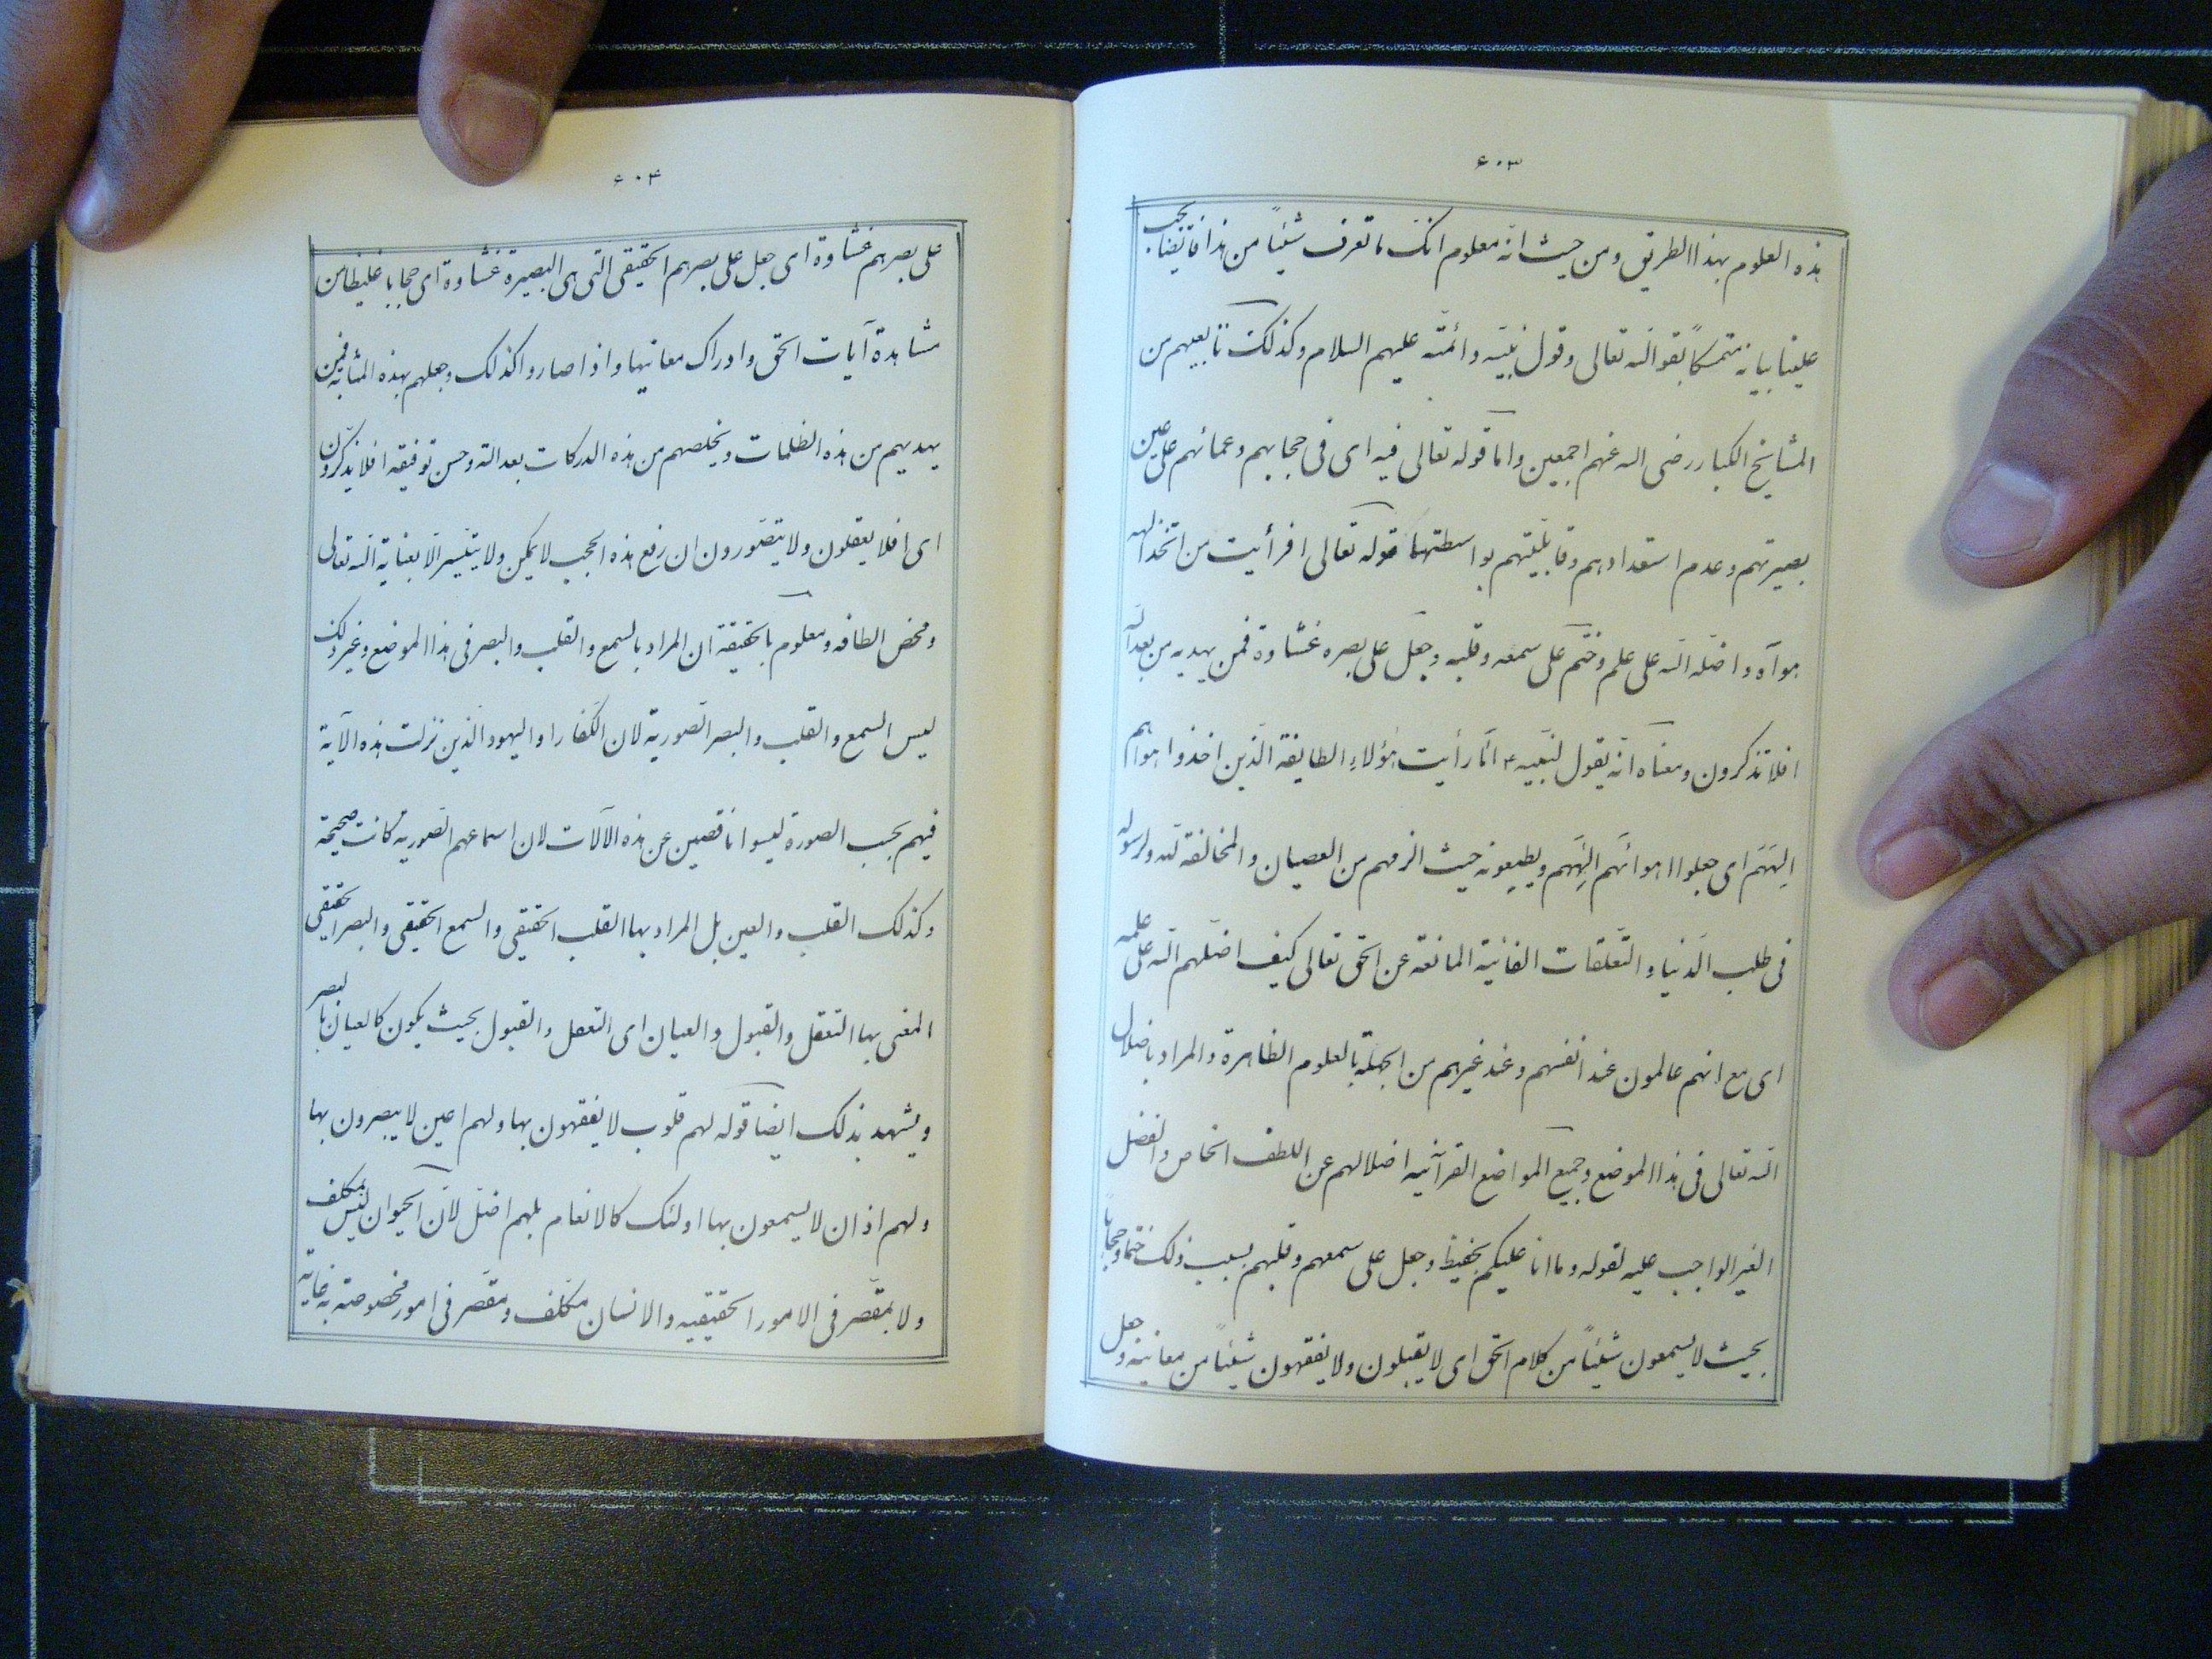 ۶۰۳
هذه العلوم بهذا الطريق ومن حيث انّه معلوم انك ما تعرف شيئاً من هذا فايضا يجب
علينا بيانه متمسكاً بقول الله تعالى وقول نبيّه وائمّته عليهم السلام وكذلك تابعيهم من
المشايخ الكبار رضى الله عنهم اجمعين وامّا قوله تعالى فيه اى فى حجابهم وعمائهم على عين
بصيرتهم وعدم استعدادهم وقابليّتهم بواسطتهما قوله تعالى افرأيت من اتخذ الهه
هواه واضلّه الله على علم وختم على سمعه وقلبه وجعل على بصره غشاوة فمن يهديه من بعد الله
افلا تذكرون ومعناه انّه يقول لنبيّه ء امّا رأيت هؤلاءِ الطايفة الّذين اخذوا هواهم
الههم اى جعلوا اهوائهم الههم ويطيعونه حيث الزمهم من العصيان والمخالفة لله ولرسوله
فى طلب الدّنيا والتّعلقات الفانية المانعة عن الحق تعالى كيف اضلّهم الله على علمه
اى مع انهم عالمون عند انفسهم وعند غيرهم من الجهلة بالعلوم الظاهرة والمراد باضلال
الله تعالى فى هذا الموضع وجميع المواضع القرآنيه اضلالهم عن اللطف الخاص والفضل
الغير الواجب عليه لقوله وما انا عليكم بحفيظ وجعل على سمعهم وقلبهم بسبب ذلك ختما وحجاباً
بحيث لا يسمعون شيئاً من كلام الحق اى لا يقبلون ولا يفقهون شيئاً من معانيه وجعل
۶۰۴
على بصرهم غشاوة اى جعل على بصرهم الحقيقى التى هى البصيرة غشاوة اى حجابا غليظا من
مشاهدة آيات الحق وادراك معانيها واذا صاروا كذلك وجعلهم بهذه المثابة فمن
يهديهم من هذه الظلمات ويخلصهم من هذه الدركات بعد الله وحسن توفيقه افلا يذكرون
اى افلا يعقلون ولا يتصوّرون ان رفع هذه الحجب لا يمكن ولا يتيسر الّا بعناية الله تعالى
ومحض الطافه ومعلوم بالحقيقة ان المراد بالسمع والقلب والبصر فى هذا الموضع وغير ذلك
ليس السمع والقلب والبصر الصّورية لان الكفار او اليهود الّذين نزلت هذه الآية
فيهم بحسب الصورة ليسوا ناقصين عن هذه الآلات لان اسماعهم الصورية كانت صحيحة
وكذلك القلب والعين بل المراد بها القلب الحقيقى والسمع الحقيقى والبصر الحقيقى
المعنى بها التعقل والقبول والعيان اى التعقل والقبول بحيث يكون كالعيان بالبصر
ويشهد بذلك ايضا قوله لهم قلوب لا يفقهون بها ولهم اعين لا يبصرون بها
ولهم اذان لا يسمعون بها اولئك كالانعام بل هم اضلّ لانّ الحيوان ليس بمكلف
ولا بمقصّر فى الامور الحقيقيه والانسان مكلّف ومقصّر فى امور مخصوصة به غاية